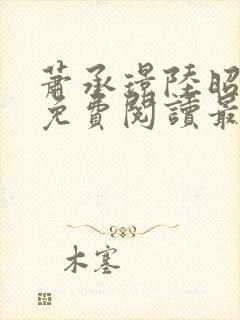 蕭承璟陸昭
免費閱讀最
木塞